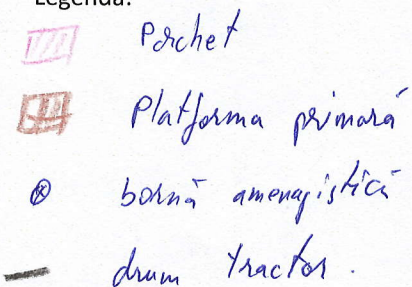 Legenda:
Parchet
Platforma primară
bornă amenajistică
drum tractor.